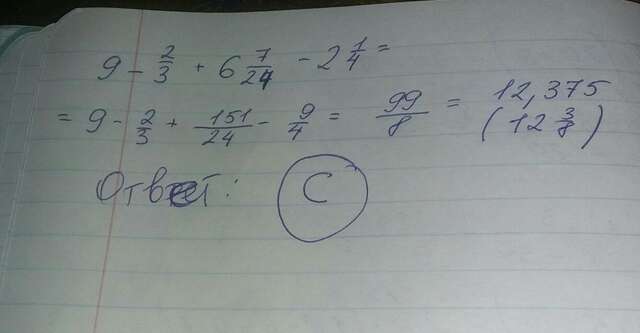 9 - 2/3 + 6 7/24 - 2 1/4 =
= 9 - 2/3 + 151/24 - 9/4 = 99/8 = 12,375
(12 3/8)
Ответ: С